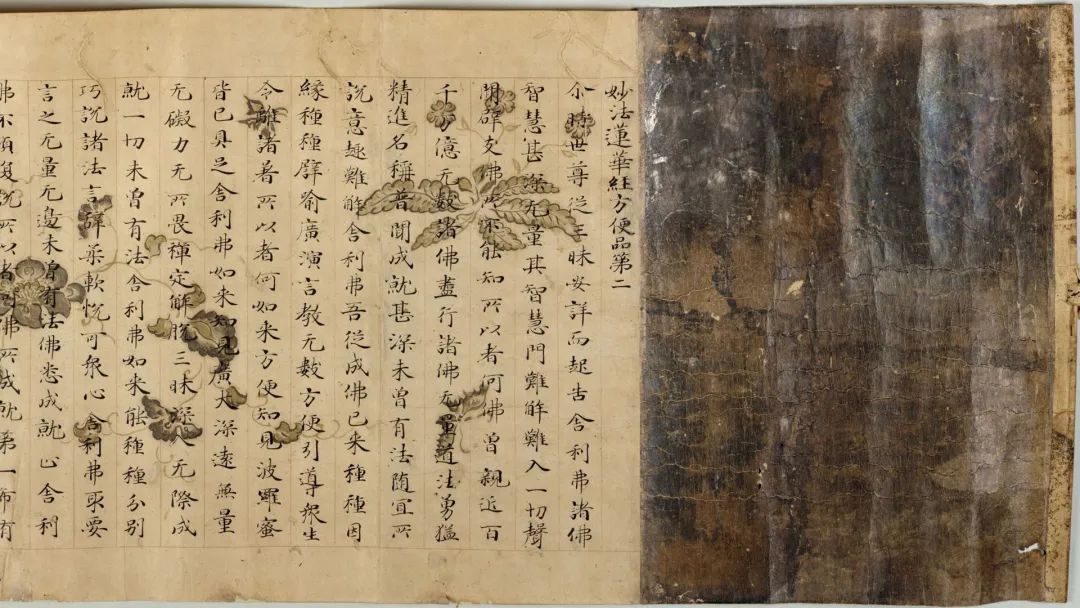 妙法蓮華經方便品第二
尒時世尊從三昧安詳而起告舍利弗諸佛
智慧甚深无量其智慧門難解難入一切聲
聞辟支佛所不能知所以者何佛曾親近百
千万億无數諸佛盡行諸佛无量道法勇猛
精進名稱普聞成就甚深未曾有法随宜所
説意趣難解舍利弗吾從成佛已来種種因
緣種種譬喻廣演言教无數方便引導衆生
令離諸著所以者何如来方便知見波羅蜜
皆已具足舍利弗如来知見廣大深遠無量
无礙力无所畏禪定解脱三昧深入无際成
就一切未曾有法舍利弗如来能種種分别
巧説諸法言辭柔軟悦可衆心舍利弗取要
言之无量无邊未曾有法佛悉成就止舍利
弗不須復説所以者何佛所成就第一希有